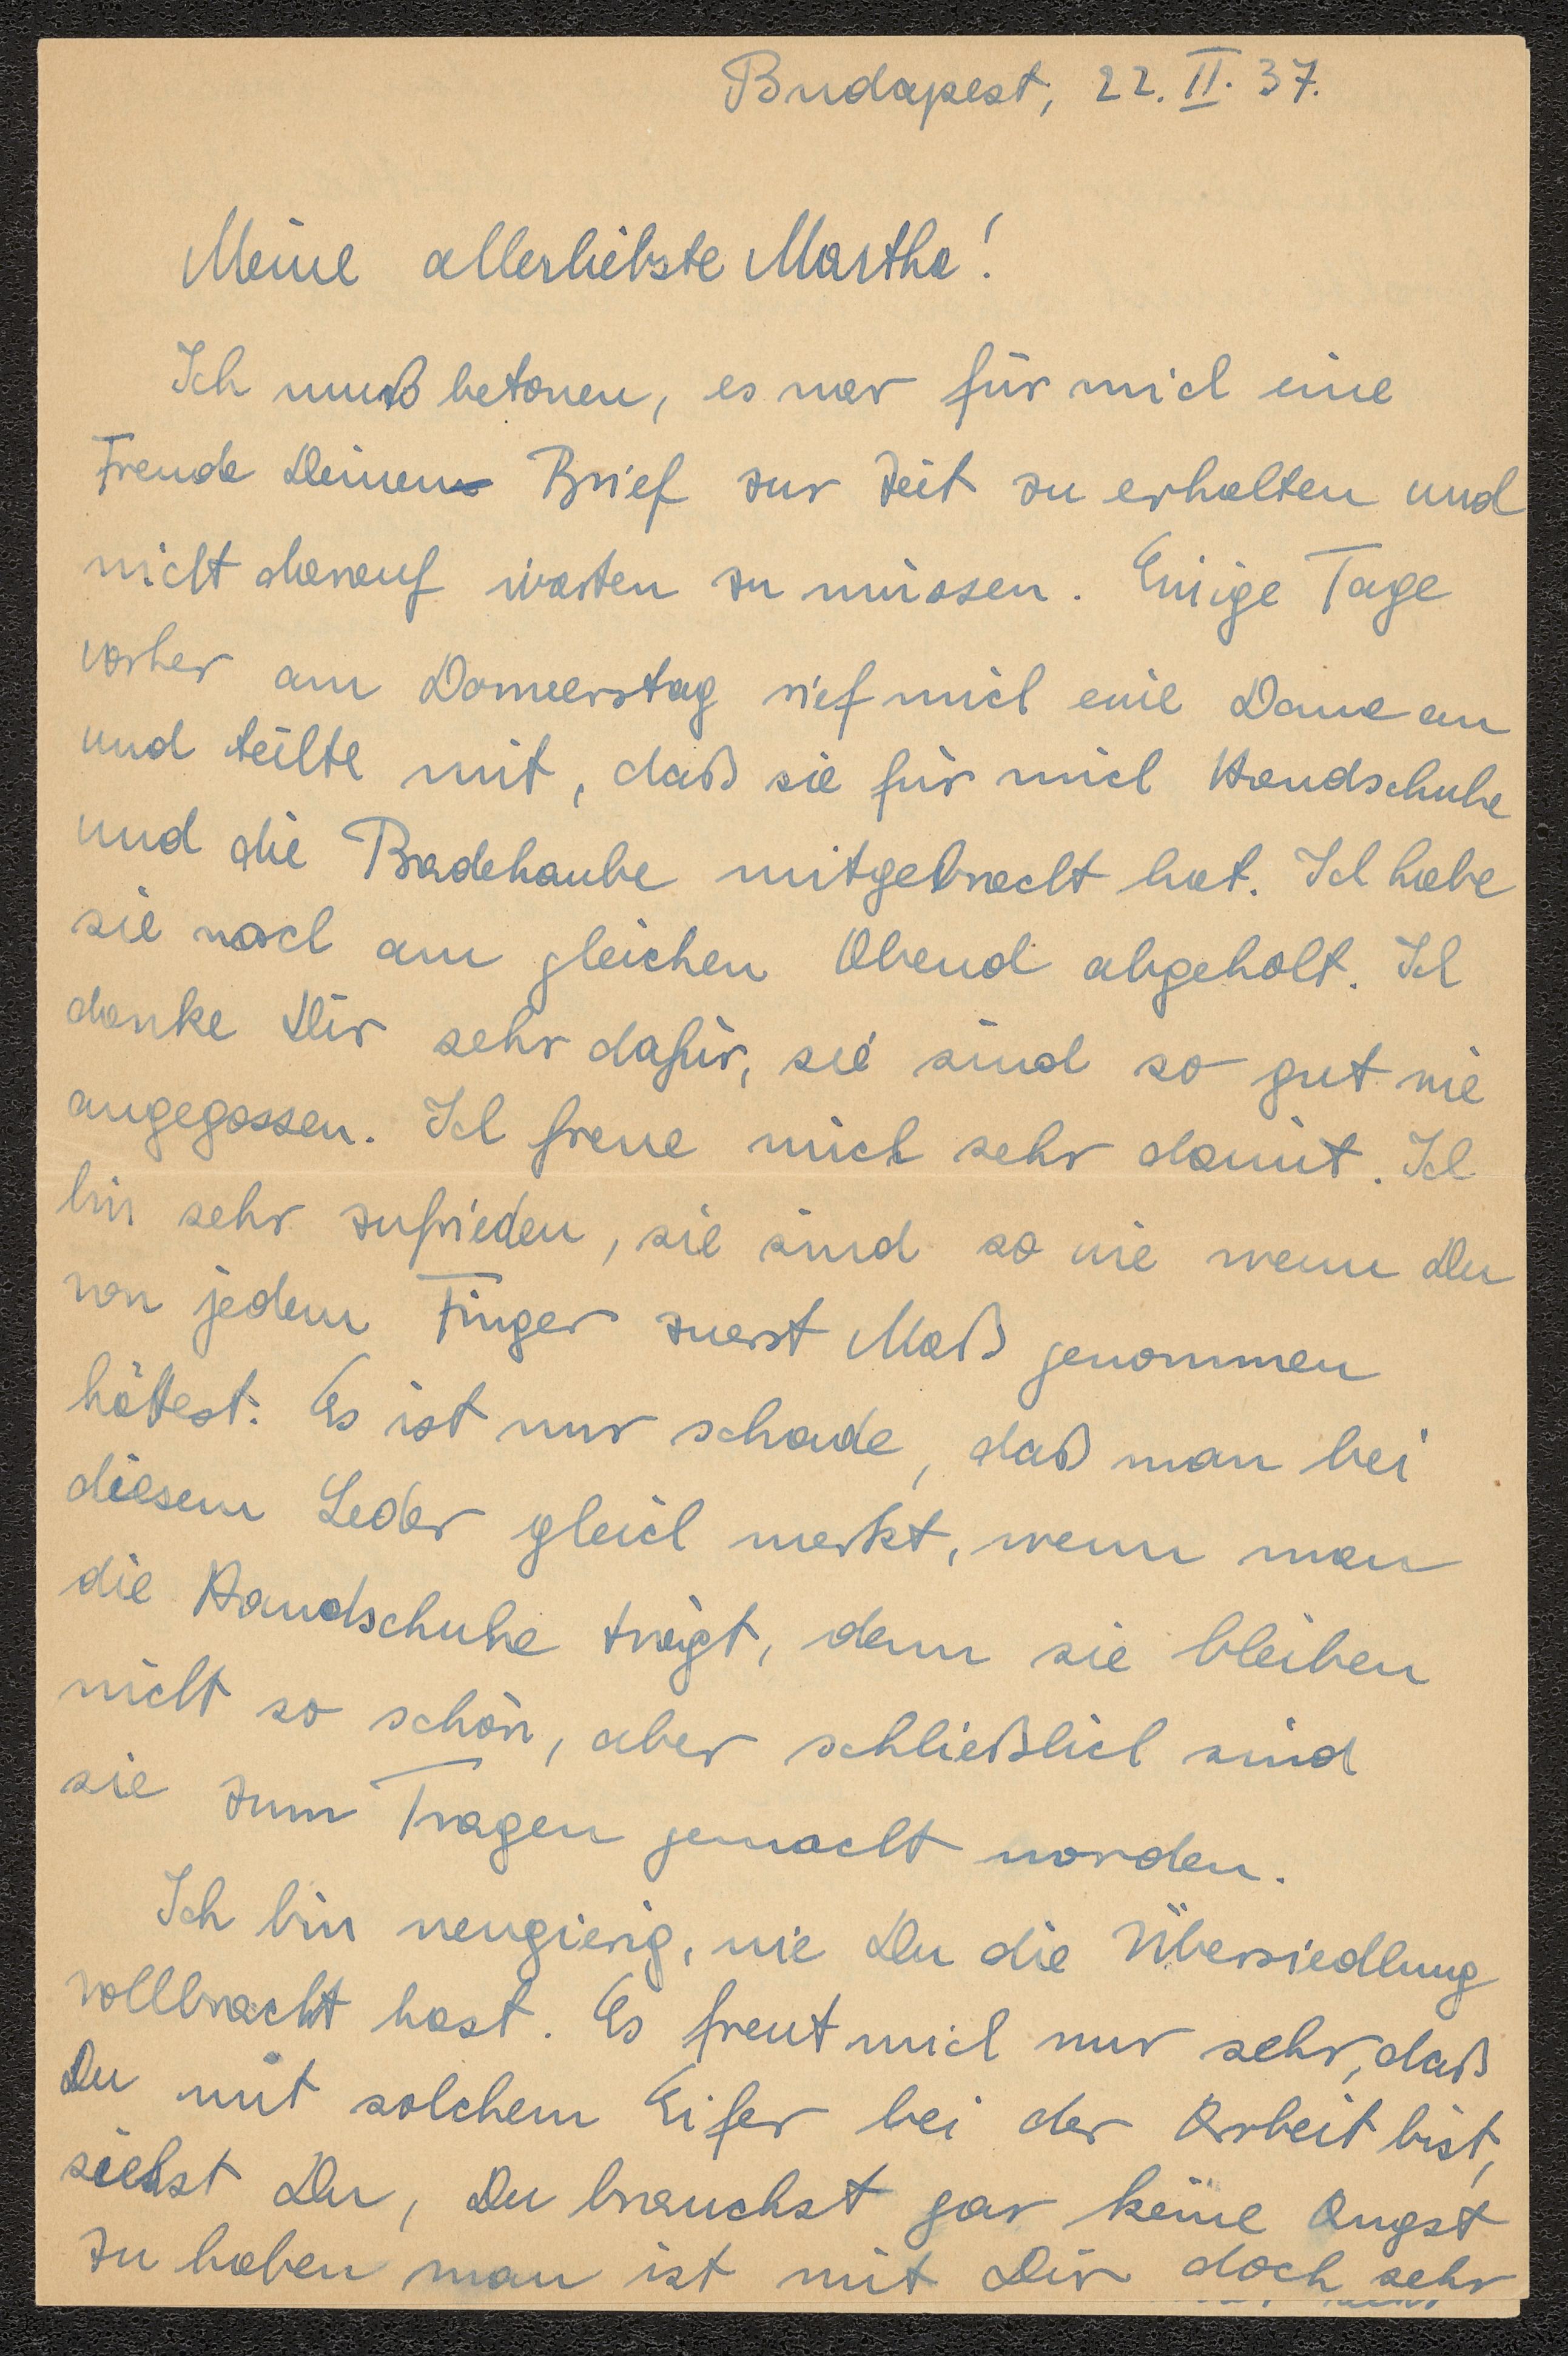 Budapest, 22. II. 37.
Meine allerliebste Martha!
Ich muß betonen, es war für mich eine
Freude Deinen Brief zur Zeit zu erhalten und
nicht darauf warten zu müssen. Einige Tage
vorher am Donnerstag rief mich eine Dame an
und teilte mit, daß sie für mich Handschuhe
und die Badehaube mitgebracht hat. Ich habe
sie noch am gleichen Abend abgeholt. Ich
danke Dir sehr dafür, sie sind so gut wie
angegossen. Ich freue mich sehr damit. Ich
bin sehr zufrieden, sie sind so wie wenn Du
von jedem Finger zuerst Maß genommen
hättest. Es ist nur schade, daß man bei
diesem Leder gleich merkt, wenn man
die Handschuhe trägt, denn sie bleiben
nicht so schön, aber schließlich sind
sie zum Tragen gemacht worden.
Ich bin neugierig, wie Du die Übersiedlung
vollbracht hast. Es freut mich nur sehr, daß
Du mit solchem Eifer bei der Arbeit bist,
siehst Du, Du brauchst gar keine Angst
zu haben man ist mit Dir doch sehr